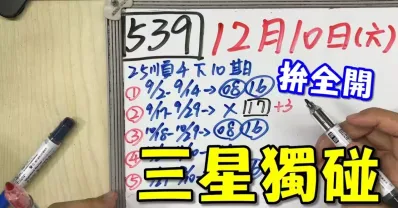 539 12月10日(六)
25順4下10期
① 9/2-9/14→ 08 16
拚全開
② 9/17-9/29→ × 17 +3
③ 10/18-10/29→ 08 16
④
三星獨碰
⑤